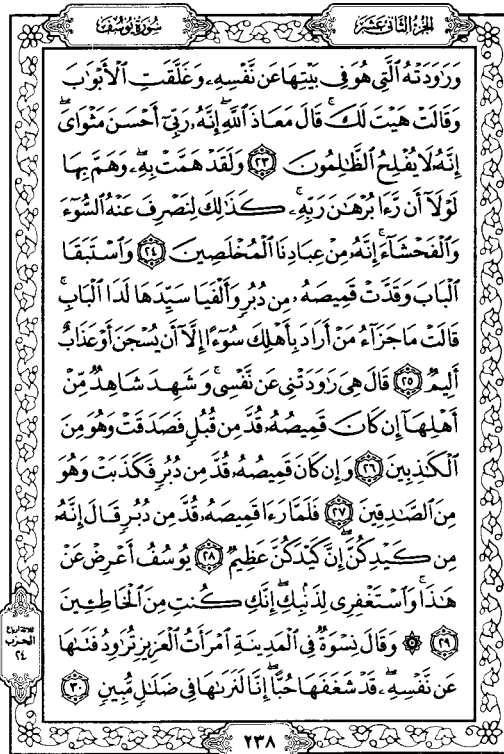 الجزء الثاني عشر
سورة يوسف
وَرَٰوَدَتْهُ ٱلَّتِي هُوَ فِي بَيْتِهَا عَن نَّفْسِهِۦ وَغَلَّقَتِ ٱلْأَبْوَٰبَ
وَقَالَتْ هَيْتَ لَكَ ۚ قَالَ مَعَاذَ ٱللَّهِ ۖ إِنَّهُۥ رَبِّيٓ أَحْسَنَ مَثْوَايَ ۖ
إِنَّهُۥ لَا يُفْلِحُ ٱلظَّٰلِمُونَ ٢٣ وَلَقَدْ هَمَّتْ بِهِۦ ۖ وَهَمَّ بِهَا
لَوْلَآ أَن رَّءَا بُرْهَٰنَ رَبِّهِۦ ۚ كَذَٰلِكَ لِنَصْرِفَ عَنْهُ ٱلسُّوٓءَ
وَٱلْفَحْشَآءَ ۚ إِنَّهُۥ مِنْ عِبَادِنَا ٱلْمُخْلَصِينَ ٢٤ وَٱسْتَبَقَا
ٱلْبَابَ وَقَدَّتْ قَمِيصَهُۥ مِن دُبُرٍ وَأَلْفَيَا سَيِّدَهَا لَدَا ٱلْبَابِ ۚ
قَالَتْ مَا جَزَآءُ مَنْ أَرَادَ بِأَهْلِكَ سُوٓءًا إِلَّآ أَن يُسْجَنَ أَوْ عَذَابٌ
أَلِيمٌ ٢٥ قَالَ هِيَ رَٰوَدَتْنِي عَن نَّفْسِي ۚ وَشَهِدَ شَاهِدٌ مِّنْ
أَهْلِهَآ إِن كَانَ قَمِيصُهُۥ قُدَّ مِن قُبُلٍ فَصَدَقَتْ وَهُوَ مِنَ
ٱلْكَٰذِبِينَ ٢٦ وَإِن كَانَ قَمِيصُهُۥ قُدَّ مِن دُبُرٍ فَكَذَبَتْ وَهُوَ
مِنَ ٱلصَّٰدِقِينَ ٢٧ فَلَمَّا رَءَا قَمِيصَهُۥ قُدَّ مِن دُبُرٍ قَالَ إِنَّهُۥ
مِن كَيْدِكُنَّ ۖ إِنَّ كَيْدَكُنَّ عَظِيمٌ ٢٨ يُوسُفُ أَعْرِضْ عَنْ
هَٰذَا ۚ وَٱسْتَغْفِرِي لِذَنۢبِكِ ۖ إِنَّكِ كُنتِ مِنَ ٱلْخَاطِـِٔينَ
٢٩ ۞ وَقَالَ نِسْوَةٌ فِي ٱلْمَدِينَةِ ٱمْرَأَتُ ٱلْعَزِيزِ تُرَٰوِدُ فَتَىٰهَا
عَن نَّفْسِهِۦ ۖ قَدْ شَغَفَهَا حُبًّا ۖ إِنَّا لَنَرَىٰهَا فِي ضَلَٰلٍ مُّبِينٍ ٣٠
ثلاثة أرباع
الحزب
٢٤
٢٣٨